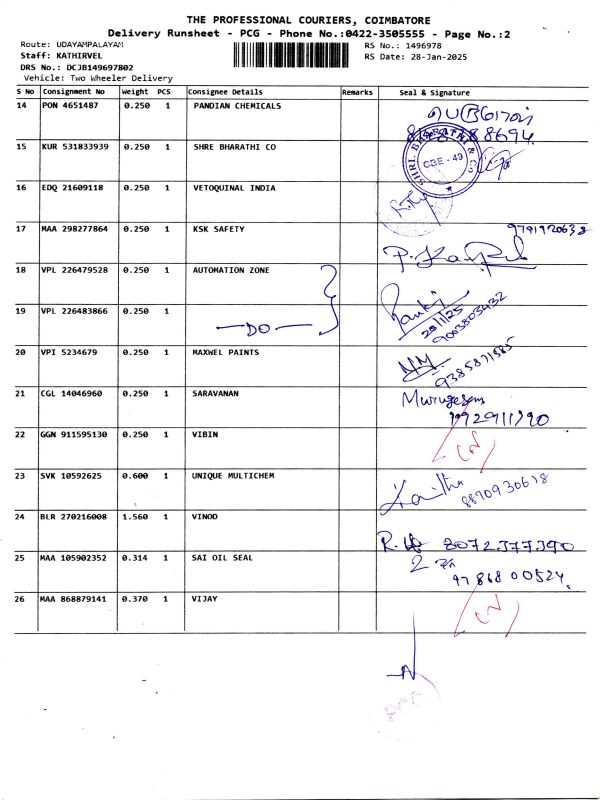 THE PROFESSIONAL COURIERS, COIMBATORE
Delivery Runsheet - PCG - Phone No.:0422-3505555 - Page No.:2
Route: UDAYAMPALAYAM RS No.: 1496978
Staff: KATHIRVEL RS Date: 28-Jan-2025
DRS No.: DCJB149697802
Vehicle: Two Wheeler Delivery
S No Consignment No Weight PCS Consignee Details Remarks Seal & Signature
14 PON 4651487 0.250 1 PANDIAN CHEMICALS
15 KUR 531833939 0.250 1 SHRE BHARATHI CO SHRI. BHARATHI & CO CBE - 49
16 EDQ 21609118 0.250 1 VETOQUINAL INDIA
17 MAA 298277864 0.250 1 KSK SAFETY 9791920638
18 VPL 226479528 0.250 1 AUTOMATION ZONE
19 VPL 226483866 0.250 1 DO 28/1/25 9003803432
20 VPI 5234679 0.250 1 MAXWEL PAINTS 9385871585
21 CGL 14046960 0.250 1 SARAVANAN Murugesan
22 GGN 911595130 0.250 1 VIBIN
23 SVK 10592625 0.600 1 UNIQUE MULTICHEM 8870930618
24 BLR 270216008 1.560 1 VINOD 8072377390
25 MAA 105902352 0.314 1 SAI OIL SEAL 9786800524
26 MAA 868879141 0.370 1 VIJAY